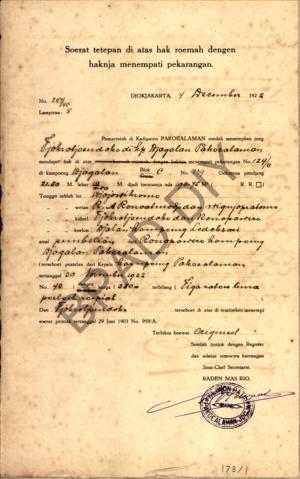 Soerat tetepan di atas hak roemah dengen
haknja menempati pekarangan.
DJOKJAKARTA, 4 December 1922
No. 247/
Lampiran : 5
Pemerentah di Kadipaten PAKOEALAMAN soedah menetepken jang
Tjokrotjendoko di kp Djagalan Pakoealaman
mendapet hak di atas pekarangan No. 124/0
di kampoeng Djagalan Blok C No. Oekoeran pandjang
21.80 M. lebar M. djadi loeasnja ada M² R. R.
Tongga sebelah lor
wetan R. A Ronoatmodjo dan
kidoel Tjokrotjendoko dan Ronopawiro
koelon Djalan kampoeng Ledoksari
atsal pembelian Ronopawiro kampoeng
Djagalan Pakoealaman
(terseboet petoetan dari Kepala kampoeng Pakoealaman
tertanggal 30 November 1922
No. 40 harga f 350= terbilang ( Tiga ratoes lima
poeloeh roepiah
Dan Tjokrotjendoko terseboet di atas di teetepken menetepi
soerat prentah tertanggal 29 Juni 1903 No. 959/A.
Terbikin boewat Origineel
Soedah tjotjok dengen Register
dan adanja semoewa keterangan
Sous-Chef Secretarie.
RADEN MAS RIO.
BPAD DIY
178/1